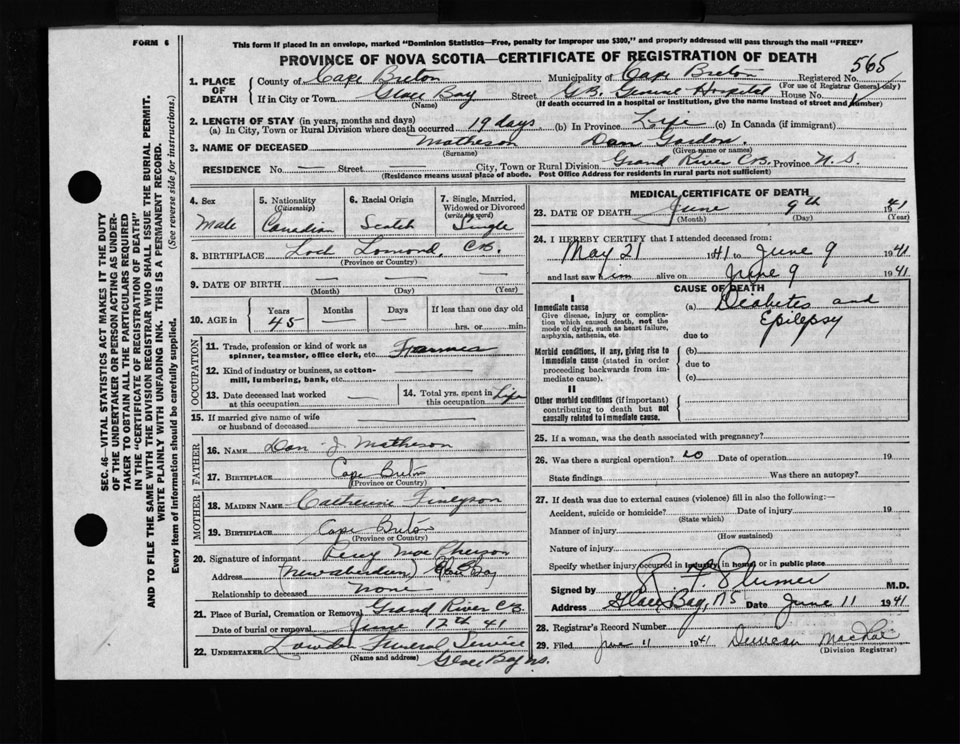 FORM 6
This form if placed in an envelope, marked "Dominion Statistics—Free, penalty for improper use $300," and properly addressed will pass through the mail "FREE"
PROVINCE OF NOVA SCOTIA—CERTIFICATE OF REGISTRATION OF DEATH
565
1. PLACE OF DEATH
County of Cape Breton Municipality of Cape Breton Registered No.
(For use of Registrar General only)
If in City or Town Glace Bay Street Hospital House No.
(Name) (If death occurred in a hospital or institution, give the name instead of street and number)
2. LENGTH OF STAY (in years, months and days)
(a) In City, Town or Rural Division where death occurred 19 days. (b) In Province Life (c) In Canada (if immigrant)
3. NAME OF DECEASED Matheson Dan
(Surname) (Given name or names)
RESIDENCE No. — Street — City, Town or Rural Division Grand River C.B. Province N. S.
(Residence means usual place of abode. Post Office Address for residents in rural parts not sufficient)
4. Sex
Male
5. Nationality
(Citizenship)
Canadian
6. Racial Origin
Scotch
7. Single, Married, Widowed or Divorced
(write the word)
Single
8. BIRTHPLACE Loch Lomond, C.B.
(Province or Country)
9. DATE OF BIRTH
(Month) (Day) (Year)
10. AGE in Years Months Days If less than one day old
45 — — hrs. or min.
OCCUPATION
11. Trade, profession or kind of work as spinner, teamster, office clerk, etc. Farmer
12. Kind of industry or business, as cotton-mill, lumbering, bank, etc.
13. Date deceased last worked at this occupation —
14. Total yrs. spent in this occupation Life
15. If married give name of wife or husband of deceased
FATHER
16. NAME Dan J. Matheson
17. BIRTHPLACE Cape Breton
(Province or Country)
MOTHER
18. MAIDEN NAME Catherine Finlyson
19. BIRTHPLACE Cape Breton
(Province or Country)
20. Signature of informant Percy Mac Pherson
Address (Newaberdeen) Glace Bay
Relationship to deceased None
21. Place of Burial, Cremation or Removal Grand River C.B.
Date of burial or removal June 12th 41
22. UNDERTAKER Funeral Service
(Name and address) Glace Bay N.S.
MEDICAL CERTIFICATE OF DEATH
23. DATE OF DEATH June 9th 1941
(Month) (Day) (Year)
24. I HEREBY CERTIFY that I attended deceased from:
May 21 1941 to June 9 1941
and last saw him alive on June 9 1941
CAUSE OF DEATH
I
Immediate cause
Give disease, injury or complication which caused death, not the mode of dying, such as heart failure, asphyxia, asthenia, etc
(a) Diabetes and
Epilepsy
due to
Morbid conditions, if any, giving rise to immediate cause (stated in order proceeding backwards from immediate cause).
(b)
due to
(c)
II
Other morbid conditions (if important) contributing to death but not causally related to immediate cause.
25. If a woman, was the death associated with pregnancy?
26. Was there a surgical operation? no Date of operation 19
State findings Was there an autopsy?
27. If death was due to external causes (violence) fill in also the following:—
Accident, suicide or homicide? Date of injury 19
(State which)
Manner of injury
(How sustained)
Nature of injury
Specify whether injury occurred in industry in home or in public place
Signed by M.D.
Address Glace Bay, NS Date June 11 1941
28. Registrar's Record Number
29. Filed June 11 1941 Duncan MacRae
(Division Registrar)
SEC. 46—VITAL STATISTICS ACT MAKES IT THE DUTY
OF THE UNDERTAKER OR PERSON ACTING AS UNDER-
TAKER TO OBTAIN ALL THE PARTICULARS REQUIRED
IN THE "CERTIFICATE OF REGISTRATION OF DEATH"
AND TO FILE THE SAME WITH THE DIVISION REGISTRAR WHO SHALL ISSUE THE BURIAL PERMIT.
WRITE PLAINLY WITH UNFADING INK. THIS IS A PERMANENT RECORD.
Every item of information should be carefully supplied. (See reverse side for instructions.)